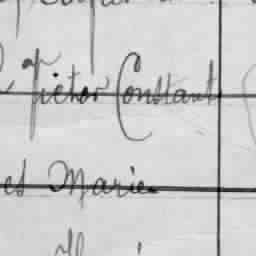 Victor Constant
et Marie